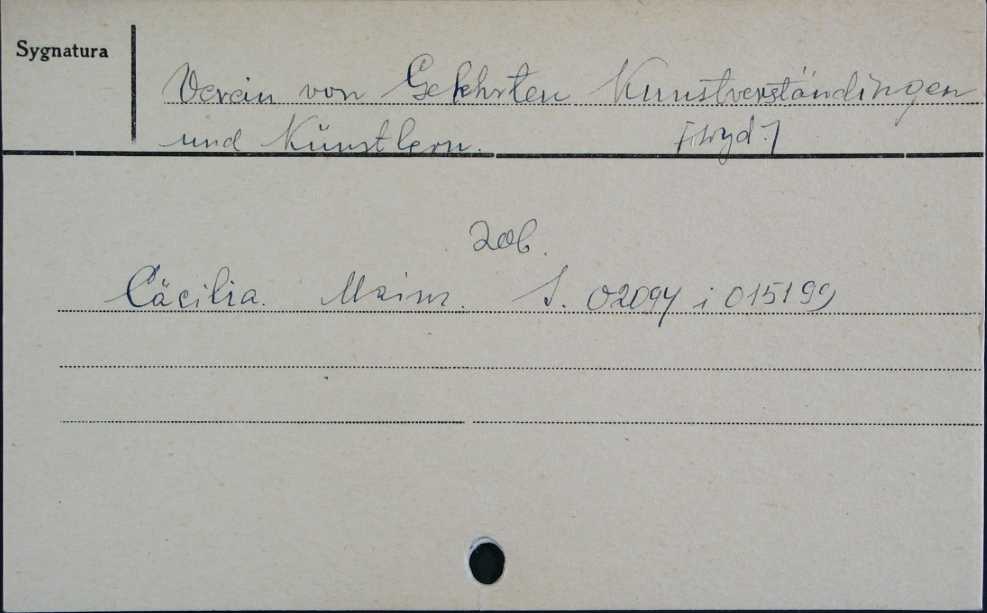 Sygnatura
Verein von Gelehrten Kunstverständingen
und Künstlern. [wyd.]
zob.
Cäcilia. Mainz. S. 02094 i 015199